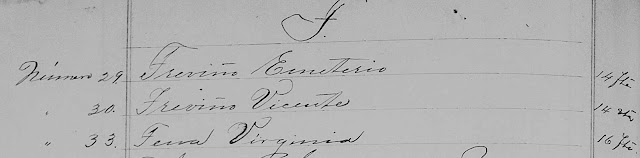 T.
Número 29. Treviño Emeterio 14 fte
" 30. Treviño Vicente 14 vto
" 33. Virginia 16 fte